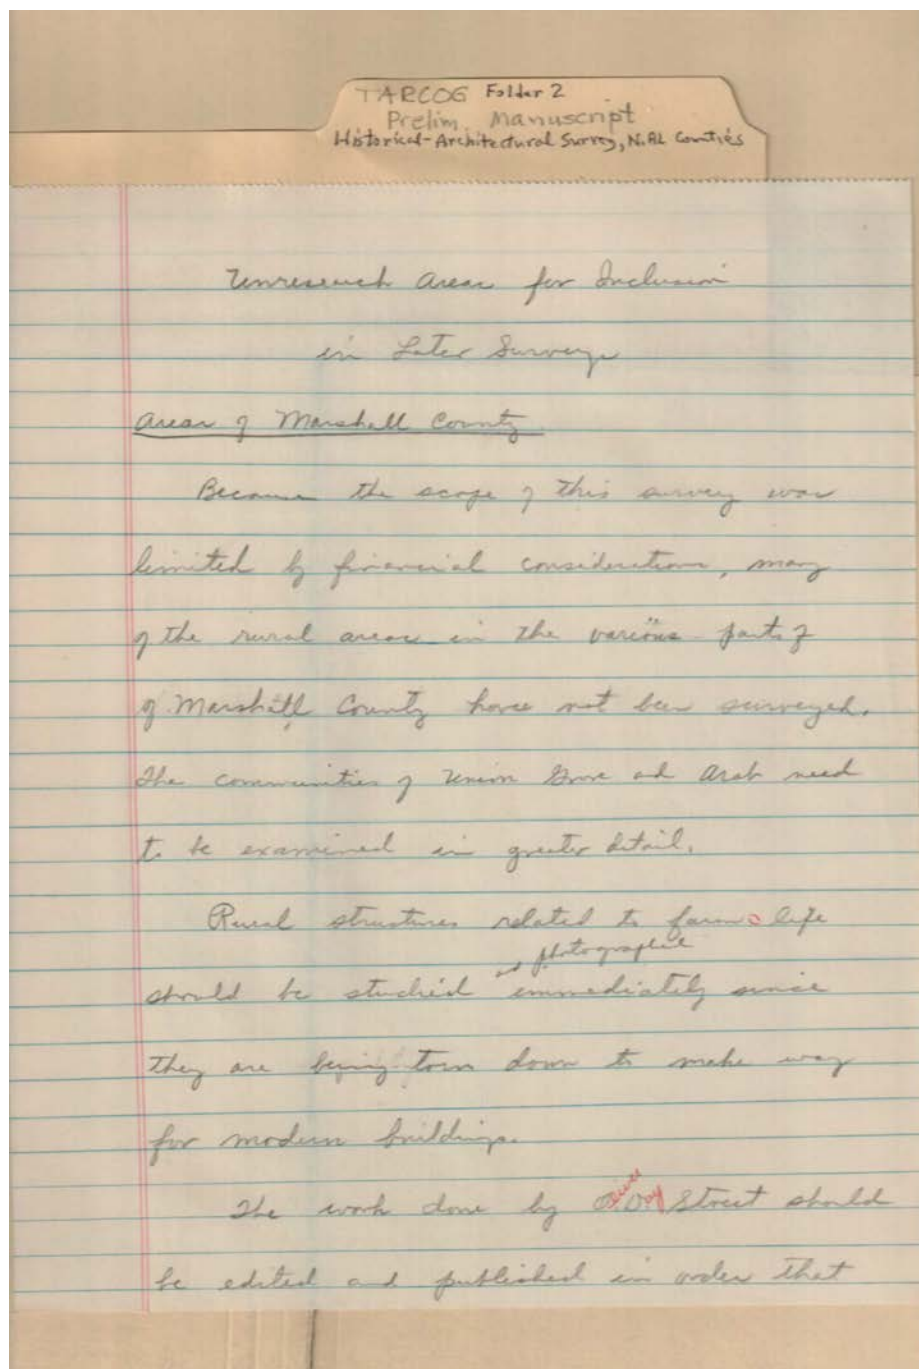 TARCOG Folder 2
Prelim. Manuscript
Historical-Architectural Survey, N. AL Counties
Unresearch Areas for Inclusion
in Later Surveys
Areas of Marshall County
Because the scope of this survey was
limited by financial considerations, many
of the rural areas in the various parts of
of Marshall County have not been surveyed.
The communities of Union Grove and Arab need
to be examined in greater detail.
Rural structures related to farm life
and photographed
should be studied immediately since
they are being torn down to make way
for modern buildings.
The work done by Oliver Day Street should
be edited and published in order that